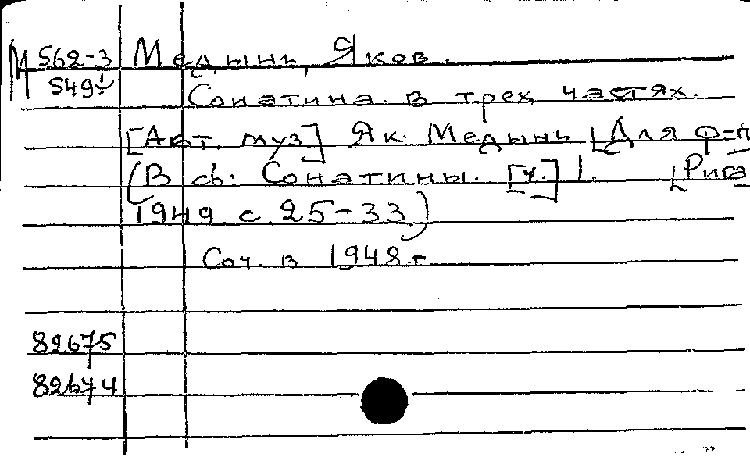 М 562-3 Медынь, Яков.
549
Сонатина в трех частях.
[Авт. муз] Як. Медынь [Для ф-п
(В сб: Сонатины. [ч.] 1. [Рига
1949 с 25-33)
Соч. в 1948 г
82675
82674